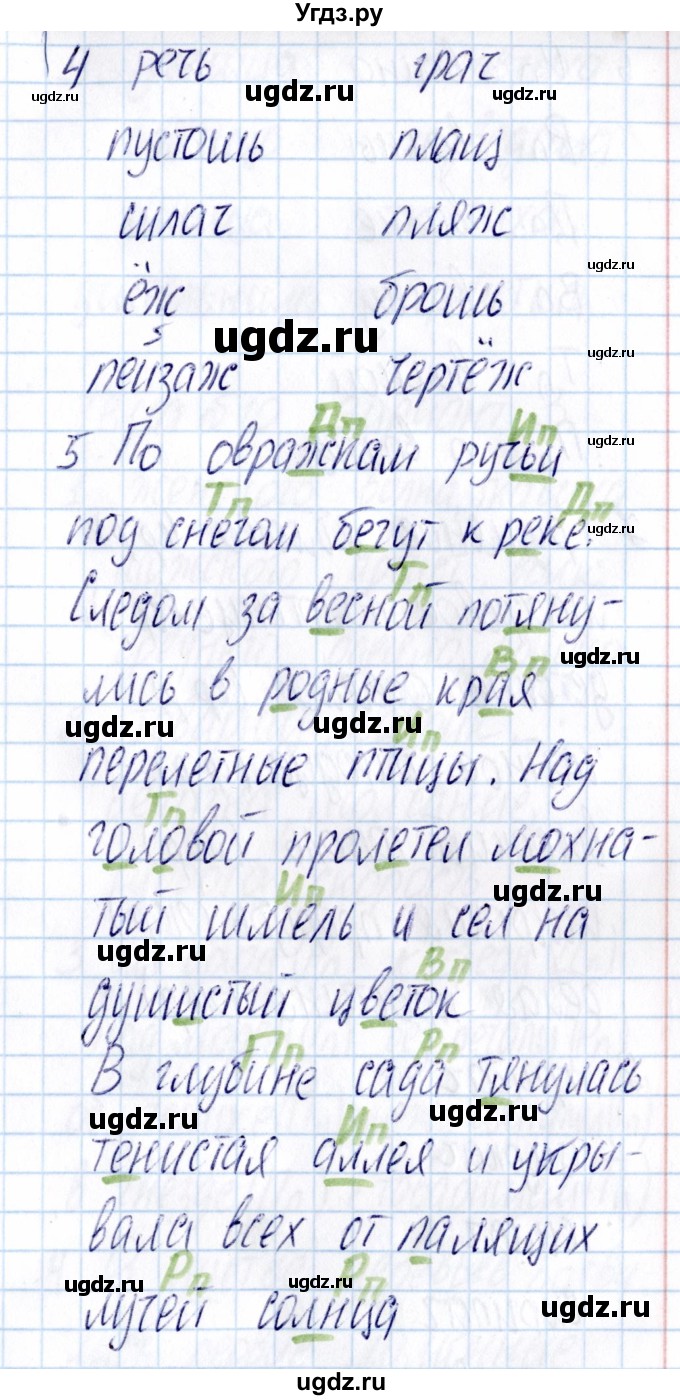 Угдз.ру
4 речь грач
ugdz.ru ugdz.ru ugdz.ru
пустошь плащ
силач пляж
ugdz.ru
ёж брошь
ugdz.ru ugdz.ru
пейзаж чертёж
Дп Ип
ugdz.ru
5 По овражкам ручьи
Тп Дп
под снегом бегут к реке.
ugdz.ru
Тп
Следом за весной потяну-
ugdz.ru
Вп
лись в родные края
ugdz.ru ugdz.ru
Ип
перелетные птицы. Над
Тп
головой пролетел мохна-
ugdz.ru
Ип
тый шмель и сел на
ugdz.ru
Вп
душистый цветок
Пп Рп
В глубине сада тянулась
ugdz.ru ugdz.ru
Ип
тенистая аллея и укры-
вала всех от палящих
Рп Рп
ugdz.ru ugdz.ru ugdz.ru
лучей солнца
ugdz.ru